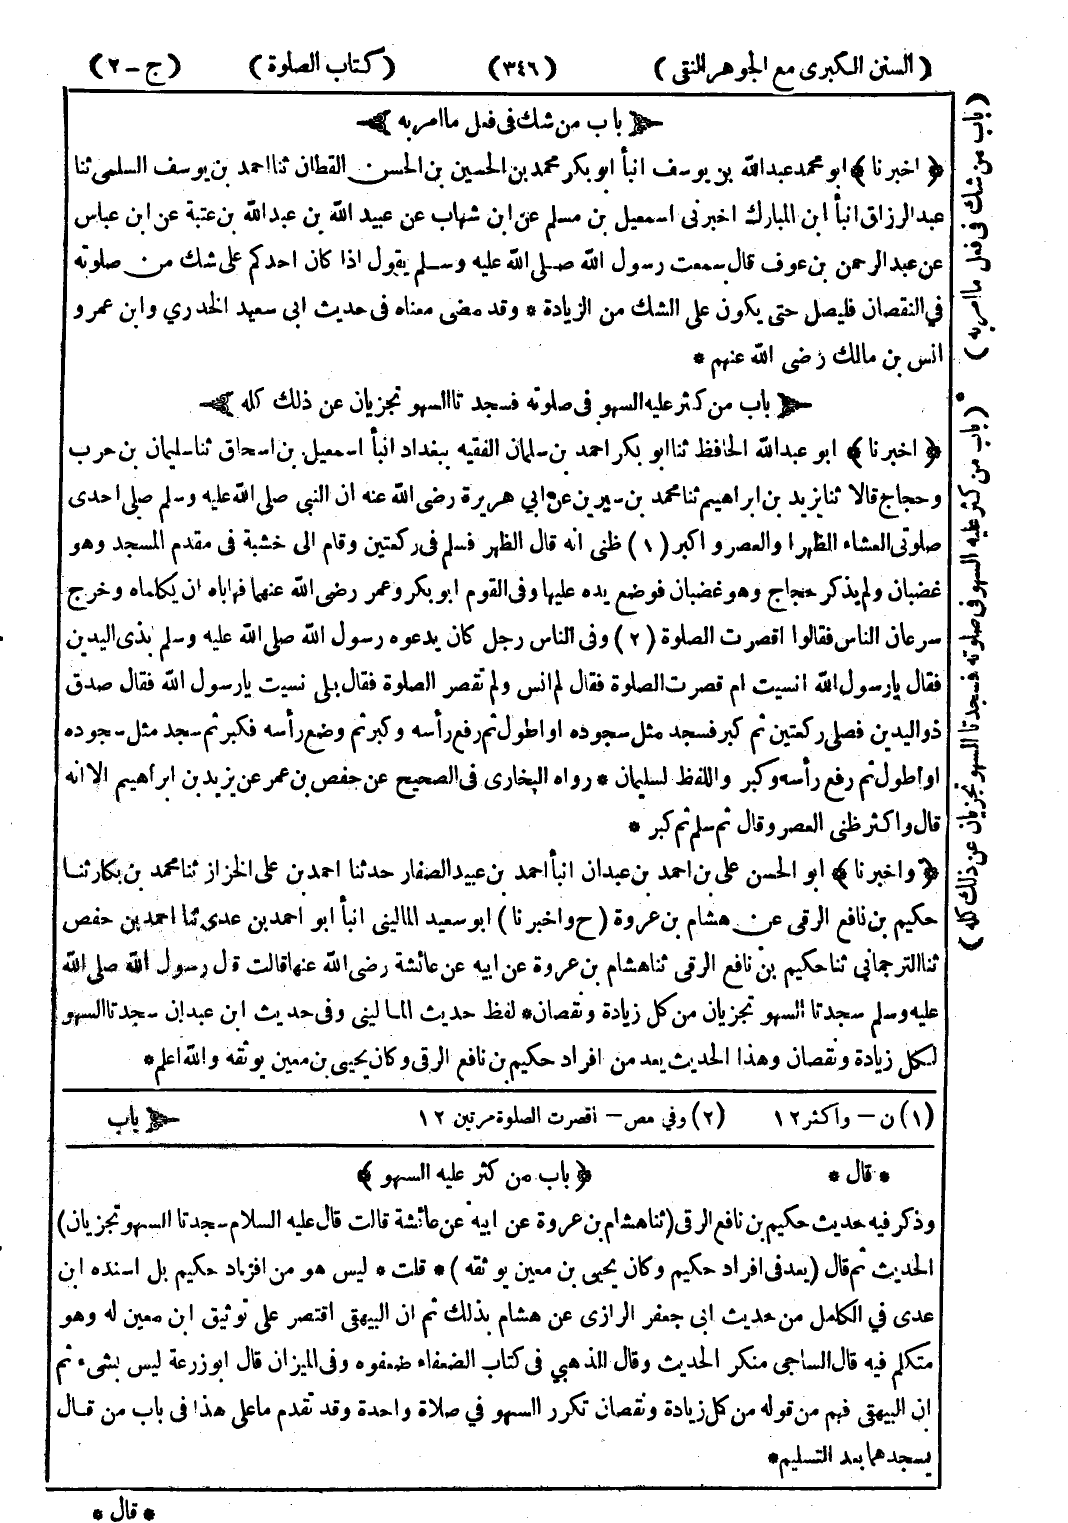 ( السنن الكبرى مع الجوهر النقي ) (٣٤٦) ( كتاب الصلوة ) (ج - ٢)
باب من شك فى فعل ما امر به
﴿ اخبرنا ﴾ ابو محمد عبدالله بن يوسف انبأ ابو بكر محمد بن الحسين بن الحسن القطان ثنا احمد بن يوسف السلمى ثنا
عبد الرزاق انبأ ابن المبارك اخبرنى اسمعيل بن مسلم عن ابن شهاب عن عبيد الله بن عبدالله بن عتبة عن ابن عباس
عن عبد الرحمن بن عوف قال سمعت رسول الله صلى الله عليه وسلم يقول اذا كان احدكم على شك من صلوته
في النقصان فليصل حتى يكون على الشك من الزيادة * وقد مضى معناه فى حديث ابى سعيد الخدري وابن عمر و
انس بن مالك رضى الله عنهم *
باب من كثر عليه السهو فى صلوته فسجدتا السهو تجزيان عن ذلك كله
﴿ اخبرنا ﴾ ابو عبدالله الحافظ ثنا ابو بكر احمد بن سلمان الفقيه ببغداد انبأ اسمعيل بن اسحاق ثنا سليمان بن حرب
وحجاج قالا ثنا يزيد بن ابراهيم ثنا محمد بن سيرين عن ابي هريرة رضى الله عنه ان النبى صلى الله عليه وسلم صلى احدى
صلوتى العشاء الظهر او العصر و اكبر (١) ظنى انه قال الظهر فسلم فى ركعتين وقام الى خشبة فى مقدم المسجد وهو
غضبان ولم يذكر حجاج وهو غضبان فوضع يده عليها وفى القوم ابو بكر وعمر رضى الله عنهما فهاباه ان يكلماه وخرج
سرعان الناس فقالوا اقصرت الصلوة (٢) وفى الناس رجل كان يدعوه رسول الله صلى الله عليه وسلم بذى اليدين
فقال يا رسول الله انسيت ام قصرت الصلوة فقال لم انس ولم تقصر الصلوة فقال بلى نسيت يا رسول الله فقال صدق
ذو اليدين فصلى ركعتين ثم كبر فسجد مثل سجوده او اطول ثم رفع رأسه وكبر ثم وضع رأسه فكبر ثم سجد مثل سجوده
او اطول ثم رفع رأسه وكبر واللفظ لسليمان * رواه البخارى فى الصحيح عن حفص بن عمر عن يزيد بن ابراهيم الا انه
قال واكثر ظنى العصر وقال ثم سلم ثم كبر *
﴿ واخبرنا ﴾ ابو الحسن على بن احمد بن عبدان انبأ احمد بن عبيد الصفار حدثنا احمد بن على الخزاز ثنا محمد بن بكار ثنا
حكيم بن نافع الرقى عن هشام بن عروة ( ح واخبرنا ) ابو سعيد المالينى انبأ ابو احمد بن عدى ثنا احمد بن حفص
ثنا الترجمانى ثنا حكيم بن نافع الرقى ثنا هشام بن عروة عن ابيه عن عائشة رضى الله عنها قالت قال رسول الله صلى الله
عليه وسلم سجدتا السهو تجزيان من كل زيادة ونقصان * لفظ حديث المالينى وفى حديث ابن عبدان سجدتا السهو
لكل زيادة ونقصان وهذا الحديث يعد من افراد حكيم بن نافع الرقى وكان يحيى بن معين يوثقه والله اعلم *
(١) ن - واكثر ١٢ (٢) وفي مص - أقصرت الصلوة مرتين ١٢ باب
* قال * ﴿ باب من كثر عليه السهو ﴾
وذكر فيه حديث حكيم بن نافع الرقى (ثنا هشام بن عروة عن ابيه عن عائشة قالت قال عليه السلام سجدتا السهو تجزيان)
الحديث ثم قال (يعد فى افراد حكيم وكان يحيى بن معين يوثقه) * قلت * ليس هو من افراد حكيم بل اسنده ابن
عدى في الكامل من حديث ابى جعفر الرازى عن هشام بذلك ثم ان البيهقى اقتصر على توثيق ابن معين له وهو
متكلم فيه قال الساجى منكر الحديث وقال الذهبي فى كتاب الضعفاء ضعفوه وفى الميزان قال ابو زرعة ليس بشىء ثم
ان البيهقى فهم من قوله من كل زيادة ونقصان تكرر السهو في صلاة واحدة وقد تقدم ما على هذا فى باب من قال
يسجدهما بعد التسليم *
* قال *
( باب من شك فى فعل ما امر به )
( باب من كثر عليه السهو فى صلوته فسجدتا السهو تجزيان عن ذلك كله )